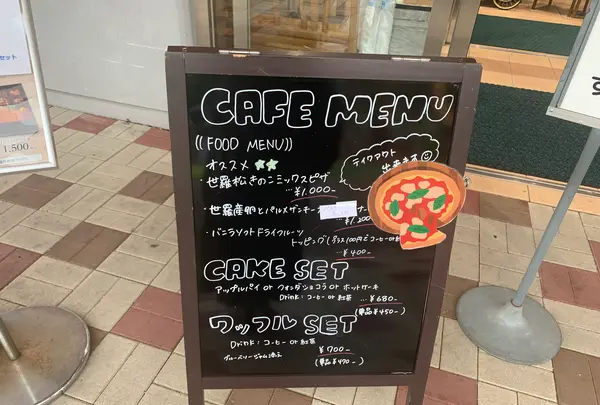 セット
1,500
す
CAFE MENU
((FOOD MENU))
テイクアウト
出来ます
オススメ
・世羅松きのこミックスピザ
…¥1,000-
・世羅産卵とパルメザンチー
ナー
¥1,200
・バニラソフトドライフルーツ
トッピング(プラス100円でコーヒーor
…¥400-
CAKE SET
アップルパイ or ウインタショコラ or ホットケーキ
Drink:コーヒー or 紅茶 …¥680-
(単品¥450-)
ワッフル SET
Drink:コーヒー or 紅茶 ¥700-
ブルーベリージャム添え (単品¥470-)